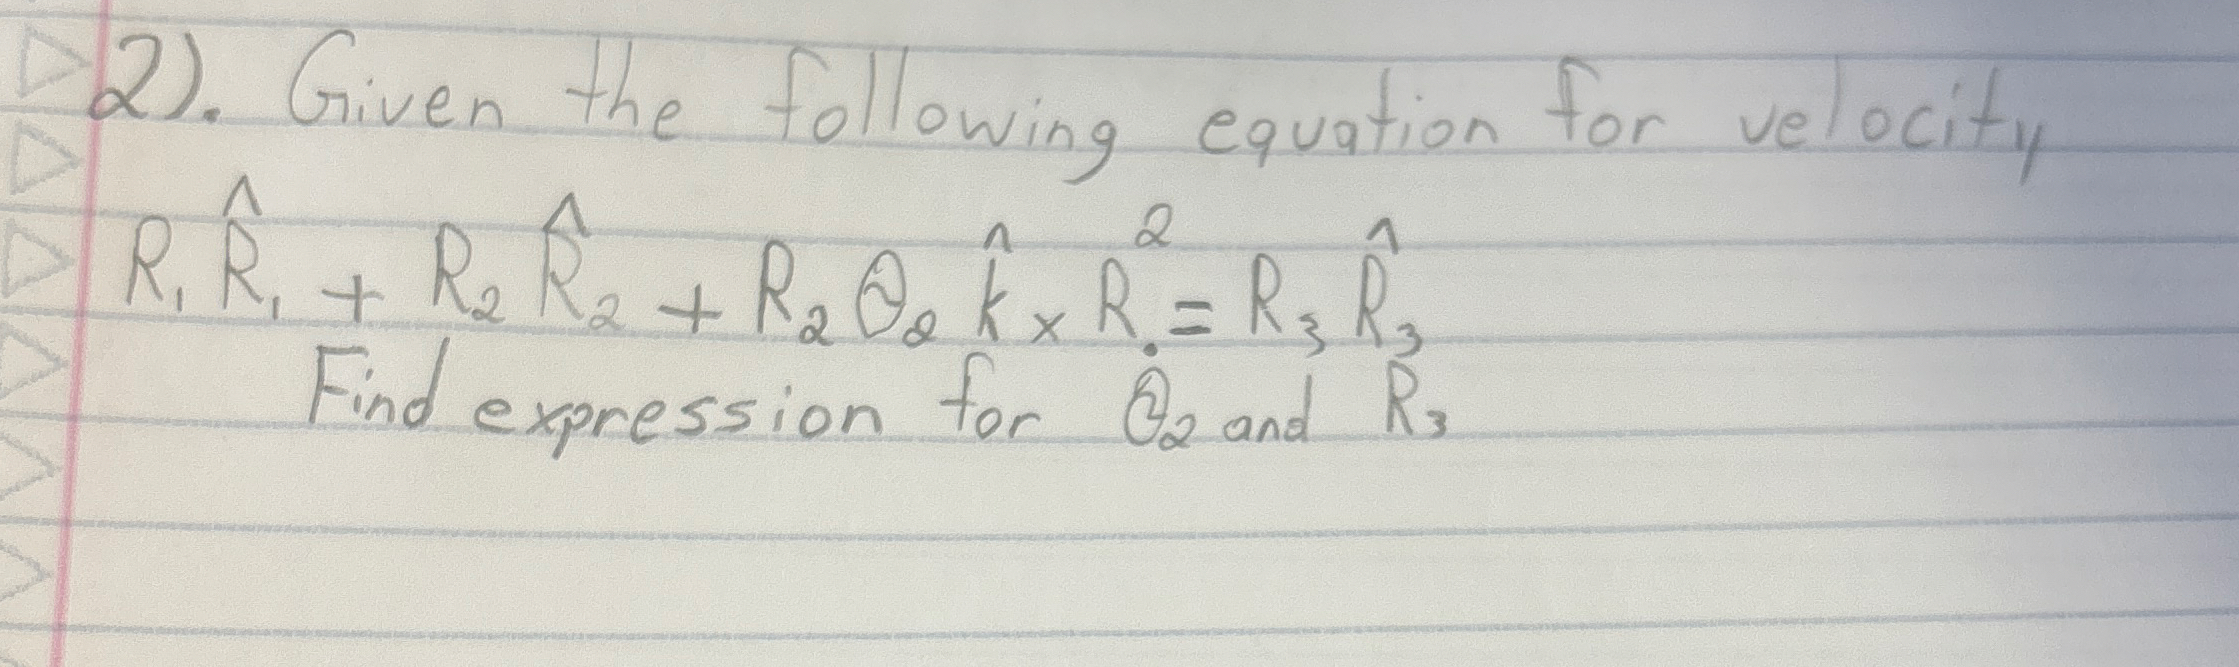 2). Given the following equation for velocity
R₁ R̂₁ + R₂ R̂₂ + R₂ θ₂ k̂ × R² = R₃ R̂₃
Find expression for θ̇₂ and R₃